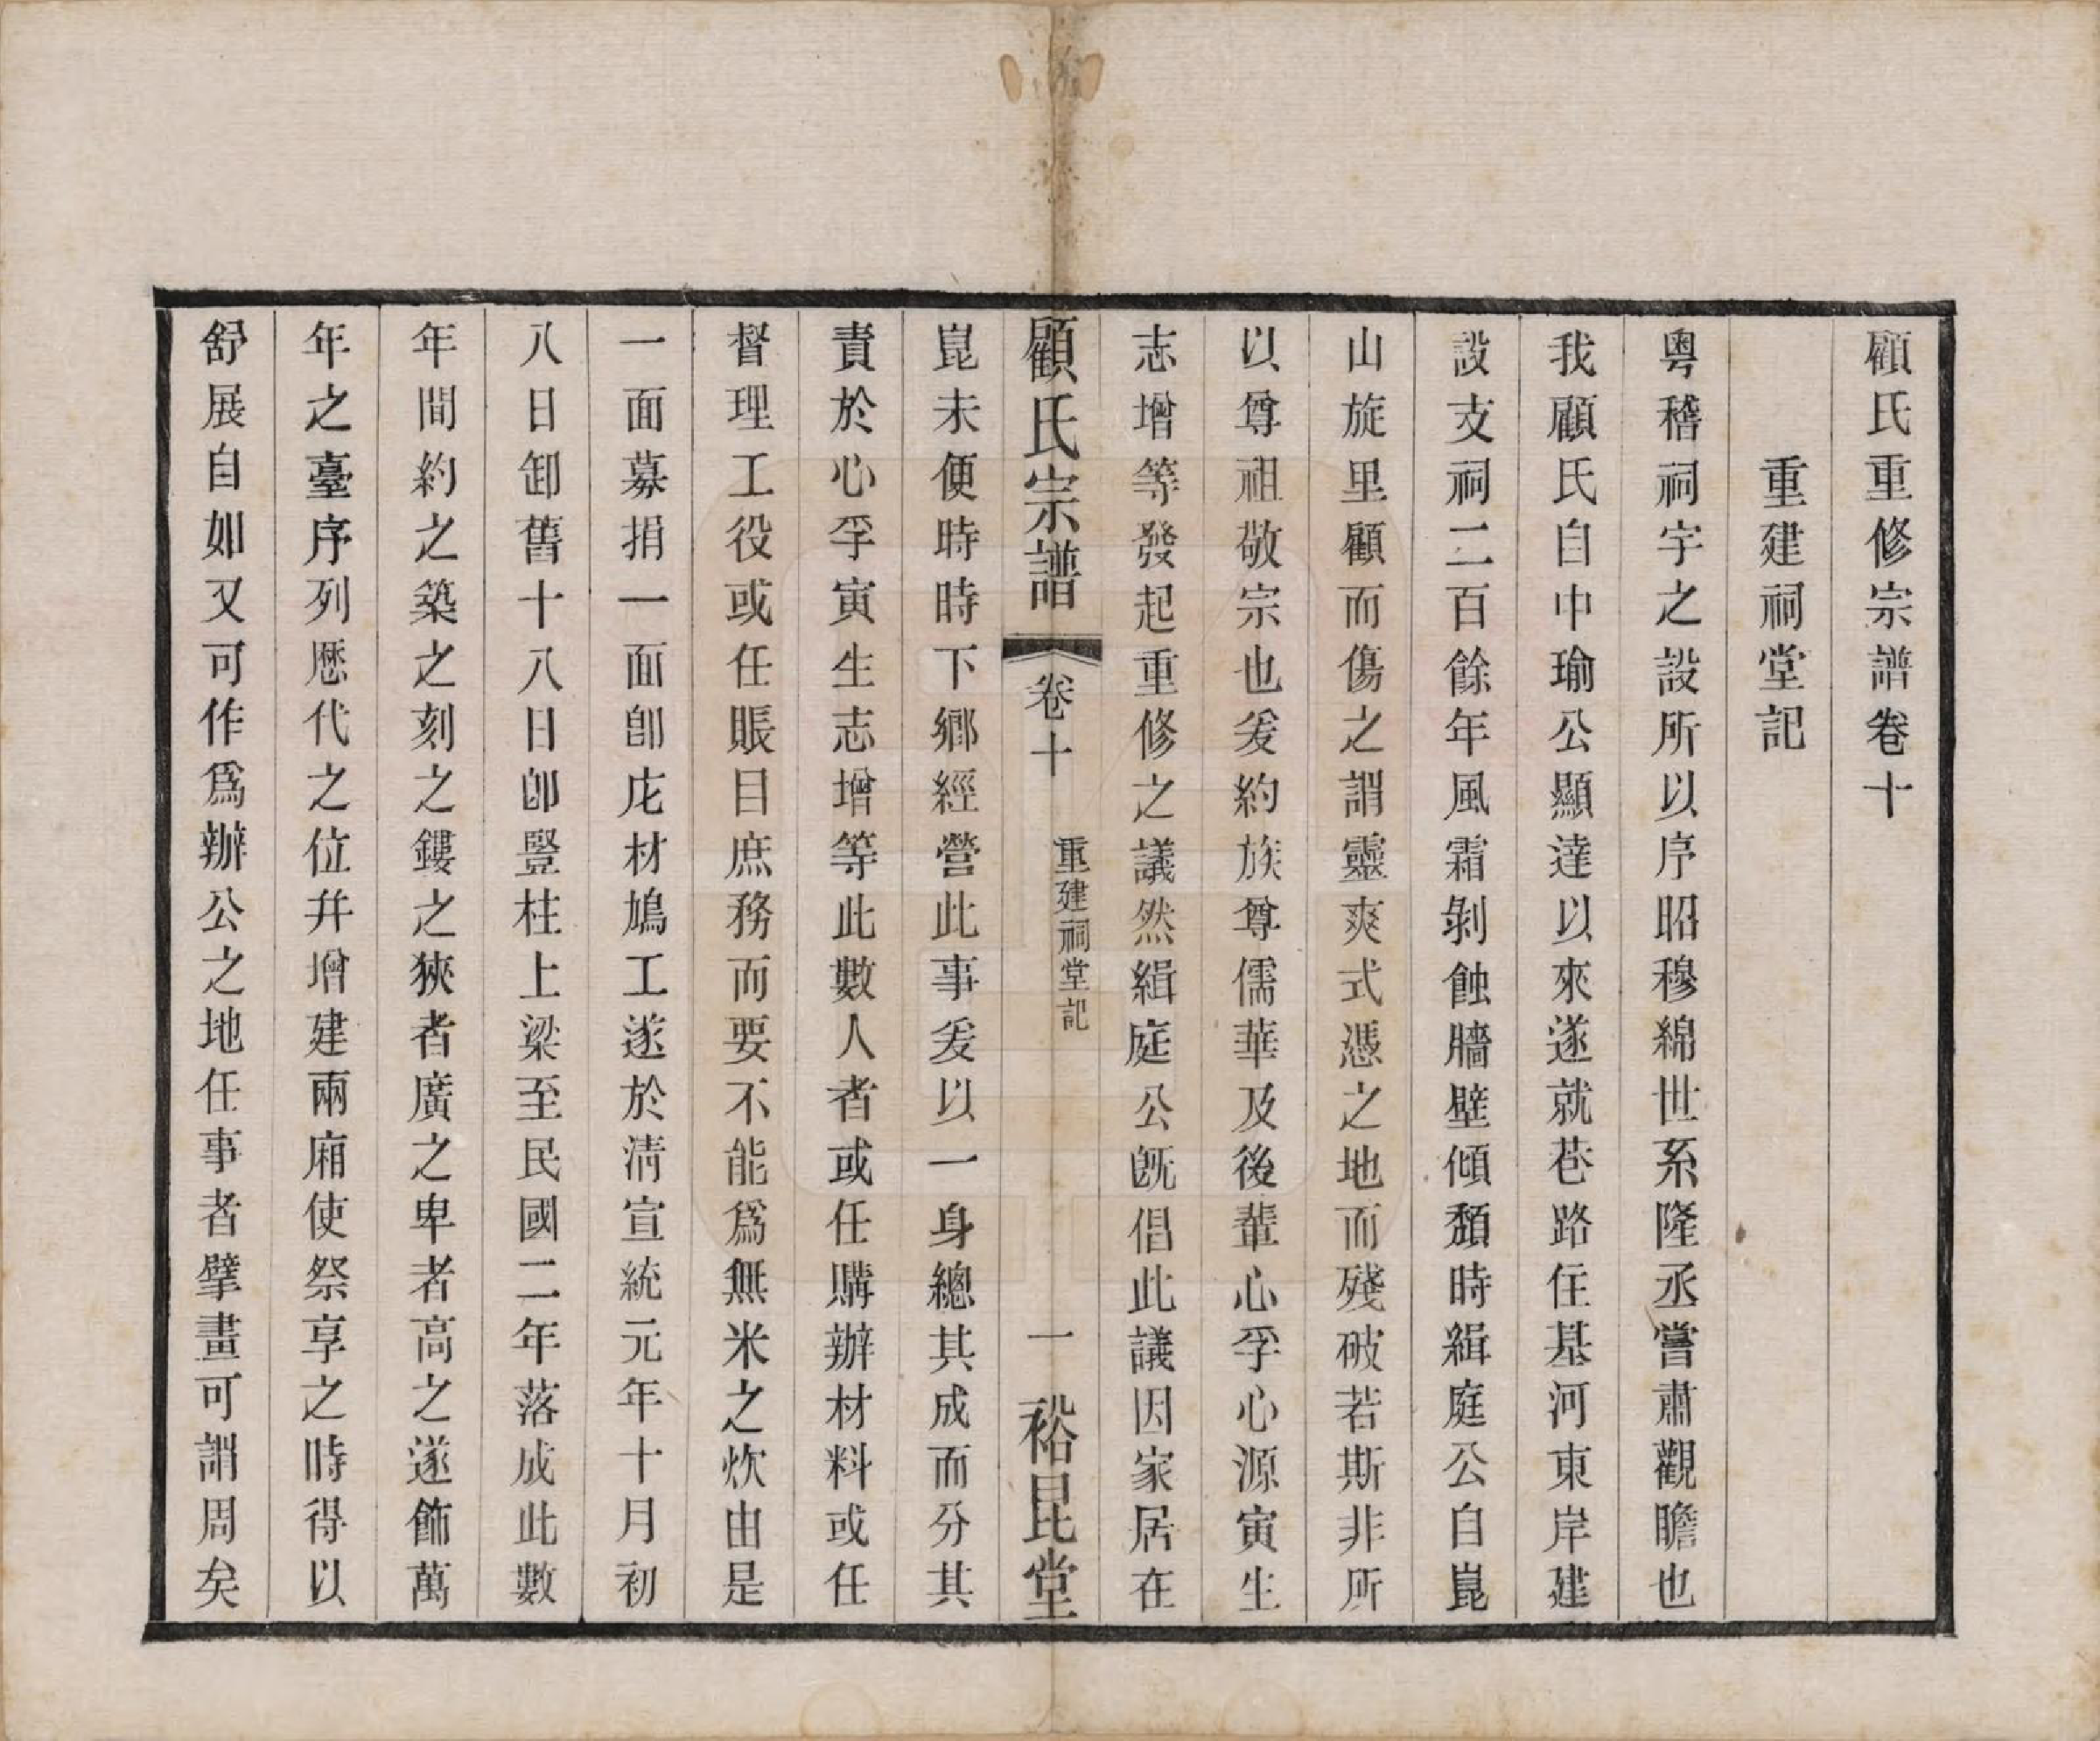 顧氏重修宗譜卷十
重建祠堂記
粵稽祠宇之設所以序昭穆綿世系隆丞嘗肅觀瞻也
我顧氏自中瑜公顯達以來遂就巷路住基河東岸建
設支祠二百餘年風霜剝蝕牆壁傾頹時緝庭公自崑
山旋里顧而傷之謂靈爽式憑之地而殘破若斯非所
以尊祖敬宗也爰約族尊儒華及後輩心孚心源寅生
志增等發起重修之議然緝庭公旣倡此議因家居在
顧氏宗譜
卷十
重建祠堂記
一
裕昆堂
崑未便時時下鄉經營此事爰以一身總其成而分其
責於心孚寅生志增等此數人者或任購辦材料或任
督理工役或任賬目庶務而要不能爲無米之炊由是
一面募捐一面卽庀材鳩工遂於淸宣統元年十月初
八日卸舊十八日卽豎柱上梁至民國二年落成此數
年間約之築之刻之鏤之狹者廣之卑者高之遂飾萬
年之臺序列歷代之位幷增建兩廂使祭享之時得以
舒展自如又可作爲辦公之地任事者擘畫可謂周矣